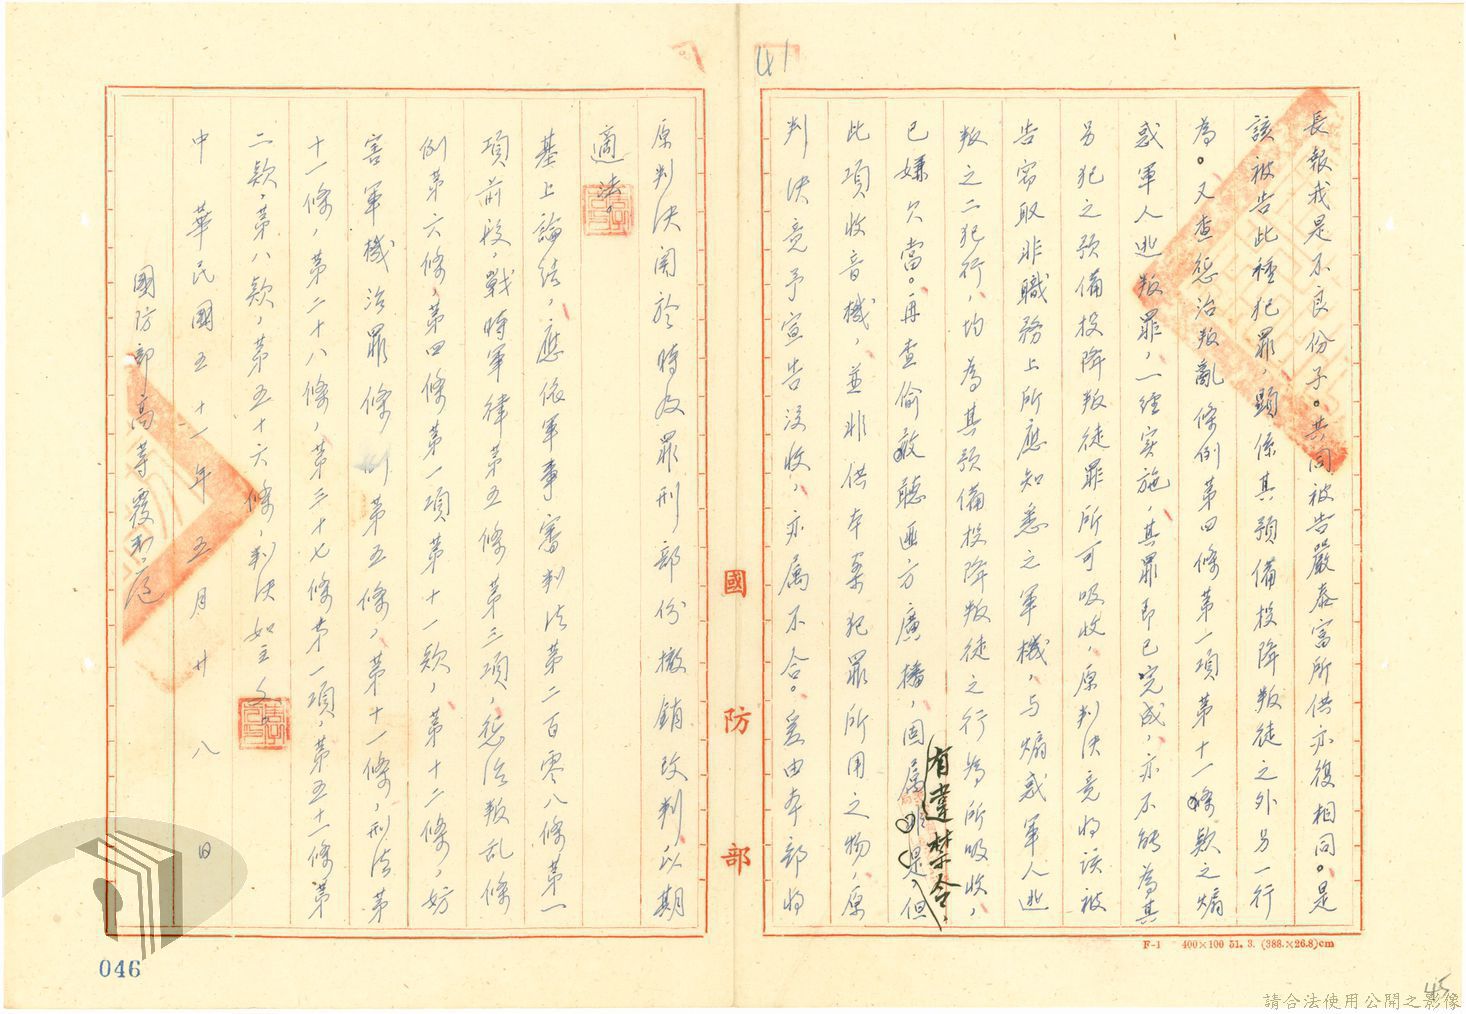 41
長報我是不良份子。共同被告嚴泰富所供亦復相同。是
該被告此種犯罪，顯係其預備投降叛徒之外另一行
為。又查懲治叛亂條例第四條第一項第十一款之煽
惑軍人逃叛罪，一經实施，其罪即已完成，亦不能為其
另犯之預備投降叛徒罪所可吸收，原判决竟将该被
告窃取非職務上所應知悉之軍機，与煽惑軍人逃
叛之二犯行，均為其預備投降叛徒之行為所吸收，
已嫌欠當。再查偷聽匪方廣播，固属有違禁令，但
此項收音機，並非供本案犯罪所用之物，原
判决竟予宣告没收，亦属不合。爰由本部将
原判决関於時及罪刑部份撤銷改判以期
適法。
基上論结，應依軍事審判法第二百零八條第一
項前段，戰時軍律第五條第三項，懲治叛乱條
例第六條，第四條第一項第十一款，第十二條，妨
害軍機治罪條例第五條，第十一條，刑法第
十一條，第二十八條，第三十七條第一項，第五十一條第
二款，第八款，第五十六條，判决如主文。
中華民國五十一年五月廿八日
國防部高等覆判庭
國防部
F-1 400×100 51. 3. (388.×26.8)cm
046
45
請合法使用公開之影像